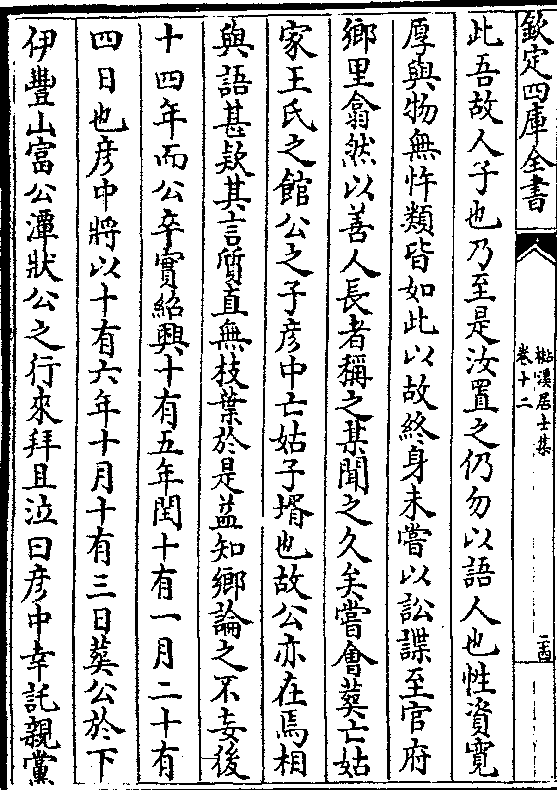 欽定四庫全書
栟溪居士集
卷十二
二四
此吾故人子也乃至是汝置之仍勿以語人也性資寛
厚與物無忤類皆如此以故終身未嘗以訟諜至官府
鄉里翕然以善人長者稱之某聞之久矣嘗會葬亡姑
家王氏之館公之子彦中亡姑子壻也故公亦在焉相
與語甚欵其言質直無枝葉於是益知鄉論之不妄後
十四年而公卒實紹興十有五年閏十有一月二十有
四日也彦中將以十有六年十月十有三日葬公於下
伊豐山富公潭狀公之行來拜且泣曰彦中幸託親黨